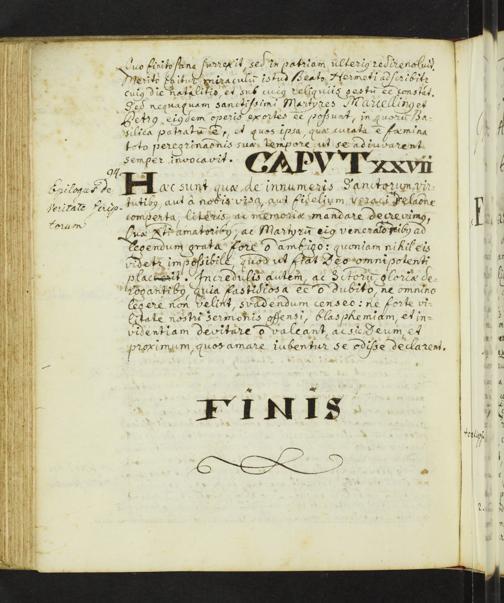 Quo finito sane surrexit, sed in patriam ulteriq redire noluit.
Merito igitur miraculũ istud Beato Hermeti adscribitr
cuiq die natalitio, et sub cuiq reliquiis gestũ eẽ constet.
Sed nequaquam sanctissimi Martyres Marcellinq et
Petrq, eiqdem operis exortes eẽ possunt, in quorũ Ba-
silica patratũ ẽ, et quos ipsa, quæ curata ẽ fæmina
toto peregrinãonis suæ tempore ut se adiuvarent
semper invocavit. CAPVT XXVII
Epilogq de
veritate scrip-
torum
Hæc sunt quæ de innumeris Sanctorum vir-
tutibq aut à nobis visa, aut fidelium veraci relãone
comperta, literis ac memoriæ mandare decrevimq,
Quæ Xti amatoribq, ac Martyrũ eiq veneratoribq ad
legendum grata fore õ ambigo: quoniam nihil eis
videtr impossibile, quod ut fiat Deo omnipotenti
placuerit. Incredulis autem, ac Sctorũ gloriæ de-
rogantibq quia fastidiosa eẽ õ dubito, ne omnino
legere non velint, suadendum censeo: ne forte vi-
litate nostri sermonis offensi, blasphemiam, et in-
videntiam devitare õ valeant, ac sic Deum, et
proximum, quos amare iubentur se odisse declarent.
FINIS